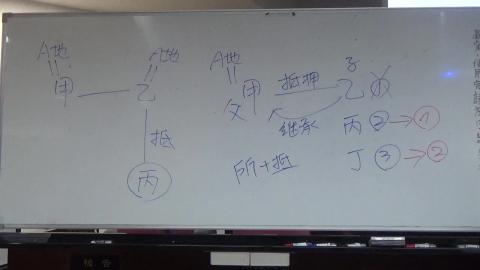 A地
A地
甲
乙
抵
丙
A地
甲
父
抵押
子
乙
①
继承
丙 ② → ①
所+抵
丁 ③ → ②